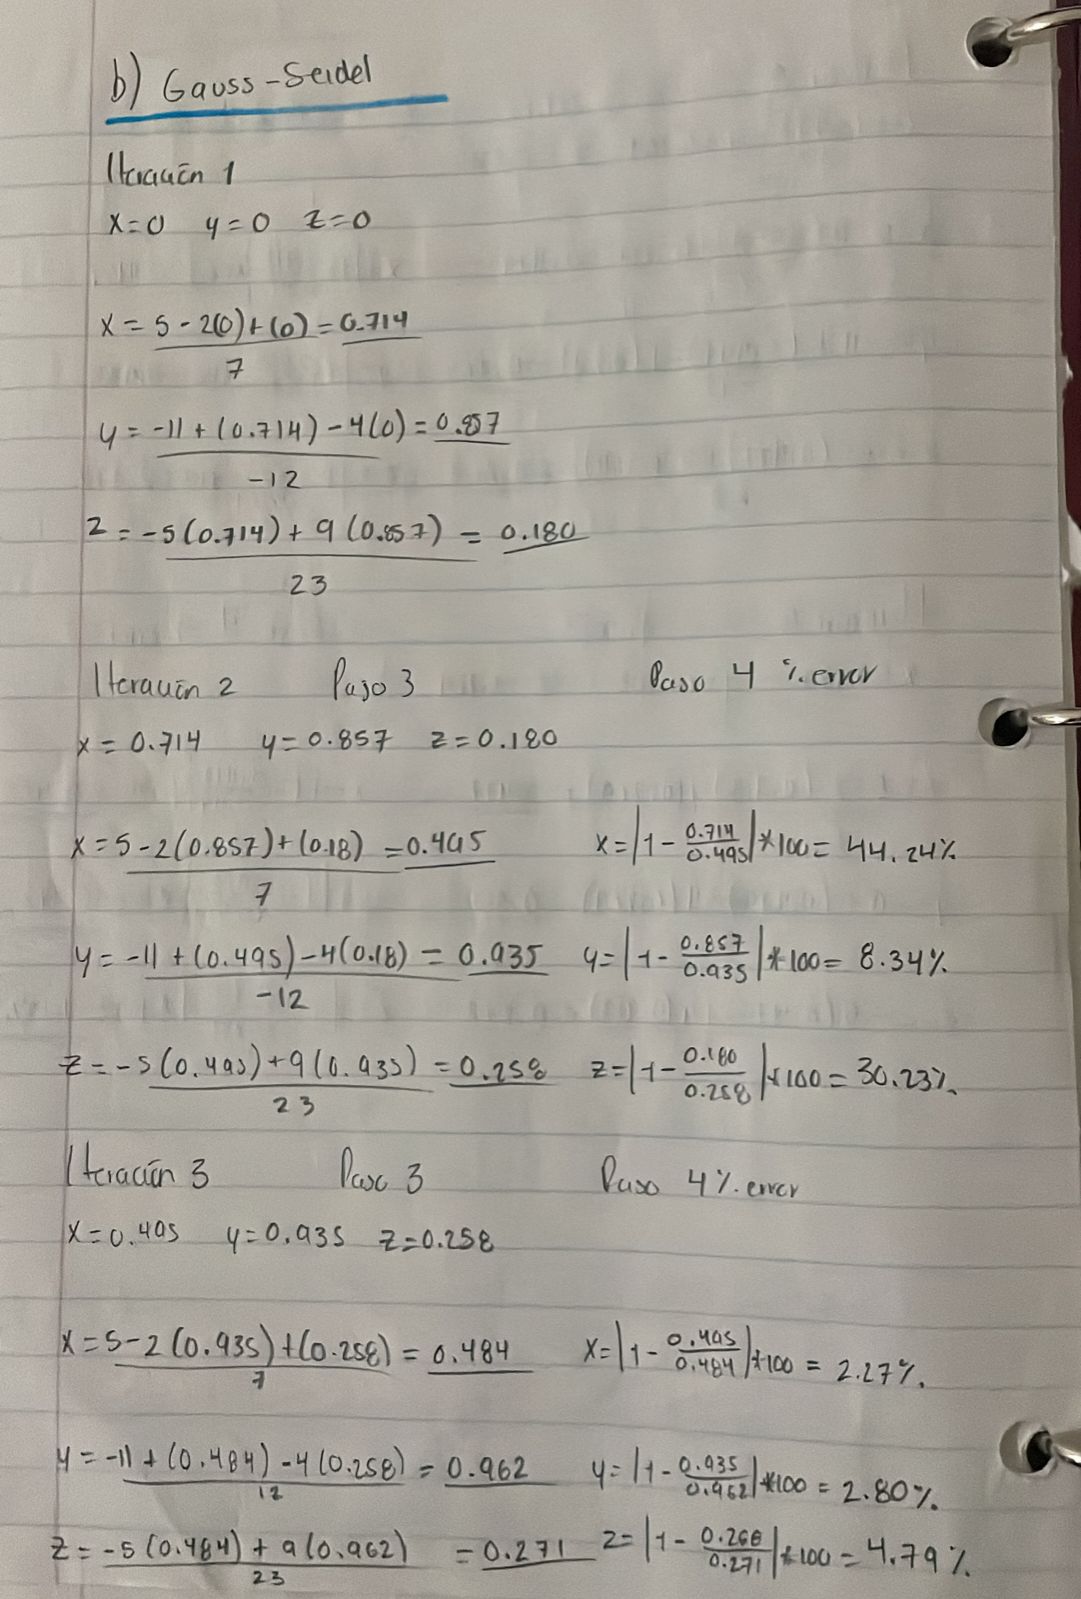 b) Gauss-Seidel
Iteración 1
x=0 y=0 z=0
x = 5 - 2(0) + (0) = 0.714
7
y = -11 + (0.714) - 4(0) = 0.857
-12
z = -5(0.714) + 9(0.857) = 0.180
23
Iteración 2 Paso 3 Paso 4 % error
x = 0.714 y = 0.857 z = 0.180
x = 5 - 2(0.857) + (0.18) = 0.495 x = |1 - 0.714/0.495| * 100 = 44.24%
7
y = -11 + (0.495) - 4(0.18) = 0.935 y = |1 - 0.857/0.935| * 100 = 8.34%
-12
z = -5(0.495) + 9(0.935) = 0.258 z = |1 - 0.180/0.258| * 100 = 30.23%
23
Iteración 3 Paso 3 Paso 4 % error
x = 0.495 y = 0.935 z = 0.258
x = 5 - 2(0.935) + (0.258) = 0.484 x = |1 - 0.495/0.484| * 100 = 2.27%
7
y = -11 + (0.484) - 4(0.258) = 0.962 y = |1 - 0.935/0.962| * 100 = 2.80%
12
z = -5(0.484) + 9(0.962) = 0.271 z = |1 - 0.268/0.271| * 100 = 4.79%
23